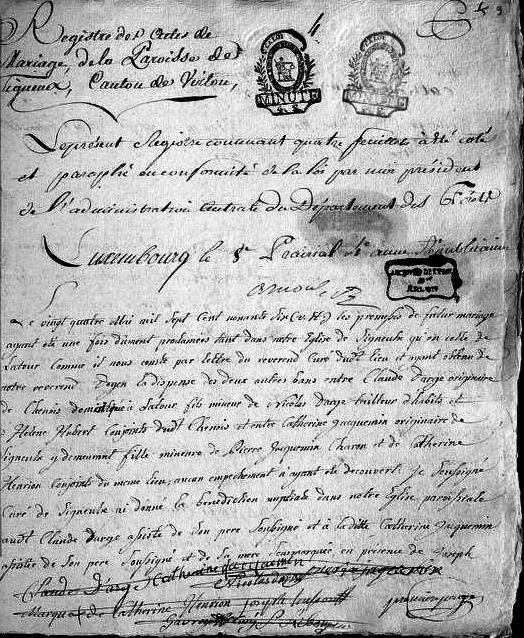 Registre des Actes de
Mariage, de la Paroisse de
Signeulx, Canton de Virton,
4
MINUTE
MINUTE
Le present Registre contenant quatre feuillets à été coté
et paraphé en conformité de la loi par moi président
de l'administration Centrale du Département des Forêts
Luxembourg le 8e Prairial 4e année Républicaine
Le vingt quatre Mai mil Sept Cent nonante Six (v. st.) les promesses de futur mariage
ayant été une fois dument proclamées tant dans notre Eglise de Signeulx qu'en celle de
Latour Comme il nous conste par lettre du reverend Curé dudt lieu et ayant obtenu de
notre reverend Doyen la dispense des deux autres bans entre Claude Darge originaire
de Chenois domicilié à Latour fils mineur de Nicolas Darge tailleur d'habits et
d'Helene Hubert Conjoints dudt Chenois et entre Catherine Jacquemin originaire de
Signeulx y demeurant fille mineure de Pierre Jacquemin Charon et de Catherine
Henrion Conjoints du meme lieu, aucun empechement n'ayant été decouvert. je Soussigné
Curé de Signeulx ai donné la Benediction nuptiale dans notre Eglise paroissiale
audt Claude Darge assisté de Son pere Soussigné et à ladite Catherine Jacquemin
assistée de Son pere Soussigné et de Sa mere Soumarquée en presence de Joseph
Claude Darge Catherine Jacquemin
Nicolas Darge
Marque de Catherine Henrion Joseph